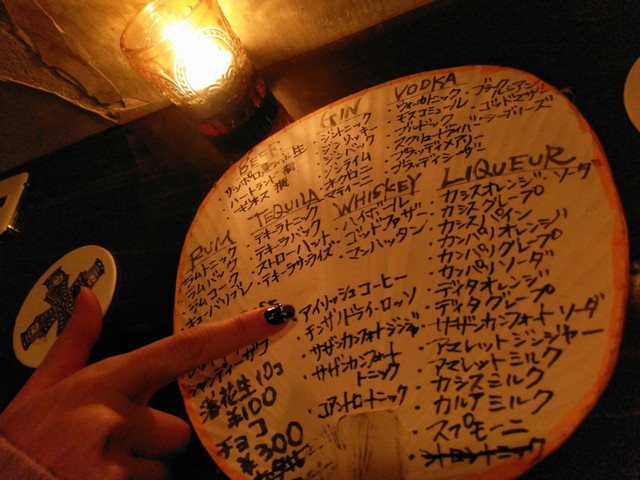 BEER
サッポロ 生
ハートランド
ギネス
GIN
ジントニック
ジンリッキー
ジンバック
ジンライム
オクロニ
マティーニ
VODKA
・ウォッカトニック
・モスコミュール
・ブルドック
・スクリュードライバー
・ブラッディメアリー
・ブラッディシーザー
・ゴッドマザー
・シーブリーズ
RUM
・ラムトニック
・ラムバック
・ラムコーク
・キューバリブレ
TEQUILA
・テキーラトニック
・テキーラバック
・ストローハット
・テキーラサンライズ
WHISKEY
・ハイボール
・ゴッドファザー
・マンハッタン
・アイリッシュコーヒー
・チンザノドライ・ロッソ
・サザンカンフォートジンジャー
・サザンカンフォート
トニック
・コアントロートニック
LIQUEUR
・カシスオレンジ ソーダ
・カシスグレープ
・カシスパイン
・カンパリオレンジ
・カンパリグレープ
・カンパリソーダ
・ディタオレンジ
・ディタグレープ
・サザンカンフォートソーダ
・アマレットジンジャー
・アマレットミルク
・カシスミルク
・カルアミルク
・スプモーニ
シャンディーガフ
落花生10コ
¥100
チョコ
¥300